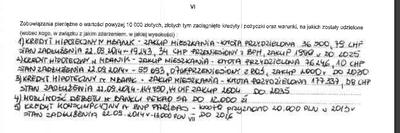 VI
Zobowiązania pieniężne o wartości powyżej 10 000 złotych, złotych tym zaciągnięte kredyty i pożyczki oraz warunki, na jakich zostały udzielone
(wobec kogo, w związku z jakim zdarzeniem, w jakiej wysokości):
1) KREDYT HIPOTECZNY MBANK - ZAKUP MIESZKANIA - KWOTA PRZYDZIELONA 36 900, 19 CHF
STAN ZADŁUŻENIA 22.09.2014 - 19.243, 34 CHF PRZENIESIONY z BPH, ZAKUP 1999 r DO 2025
2) KREDYT HIPOTECZNY W MBANK - ZAKUP MIESZKANIA - KWOTA PRZYDZIELONA 76 246, 10 CHF
STAN ZADŁUŻENIA 22.09.2014 - 55 693, 07 PRZENIESIONY z ZAKUP 2000 r DO 2030
3) KREDYT HIPOTECZNY MBANK - ZAKUP MIESZKANIA - KWOTA PRZYDZIELONA 177.337, CHF
STAN ZADŁUŻENIA 22.09.2014 - CHF ZAKUP DO 2035
4) MOŻLIWOŚĆ DEBETU W BANKU PEKAO SA DO 12.000 zł
5) KREDYT KONSUMPCYJNY W BNP PARIBAS - KWOTA PRZYZNANO 20.000 PLN w
STAN ZADŁUŻENIA 22.09.2014 - PLN DO 2016
VII